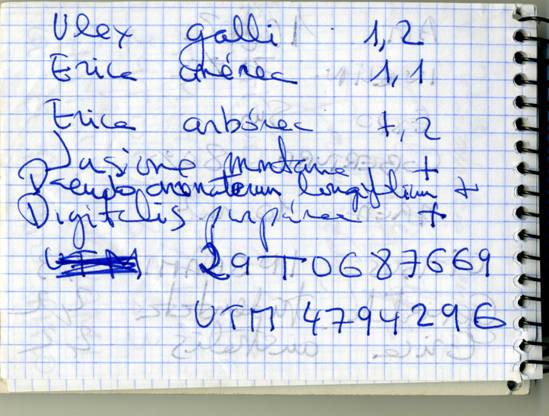 Ulex galli 1,2
Erica cinérea 1,1
Erica arbórea +,2
Jasione montana +
Pseudoarrhenaterum longifolium +
Digitalis purpúrea +
29T0687669
UTM 4794296